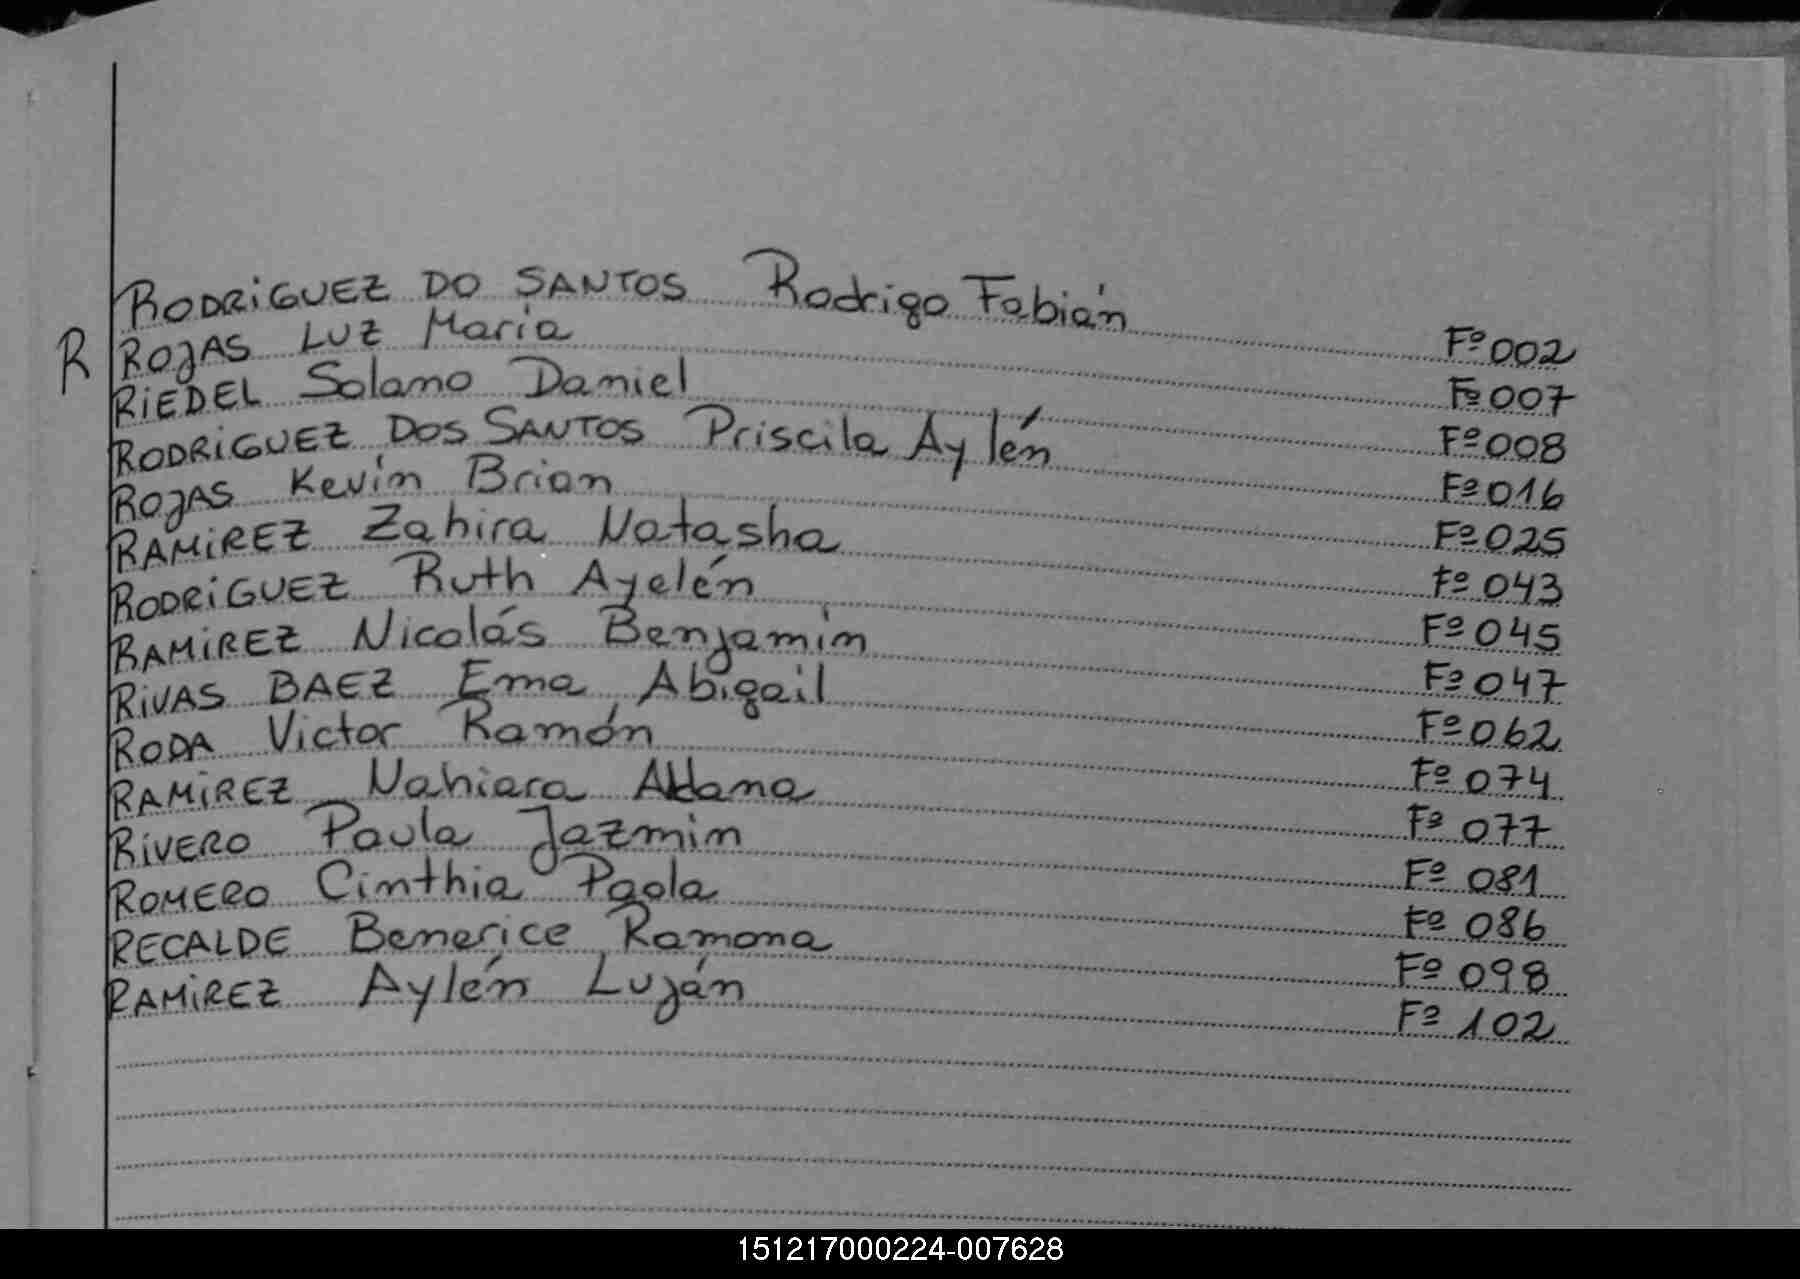 RODRIGUEZ DO SANTOS Rodrigo Fabián Fº 002
R ROJAS LUZ María Fº 007
RIEDEL Solano Daniel Fº 008
RODRIGUEZ DOS SANTOS Priscila Aylén Fº 016
ROJAS Kevin Brian Fº 025
RAMIREZ Zahira Natasha Fº 043
RODRIGUEZ Ruth Ayelén Fº 045
RAMIREZ Nicolás Benjamín Fº 047
RIVAS BAEZ Ema Abigail Fº 062
RODA Victor Ramón Fº 074
RAMIREZ Nahiara Aldana Fº 077
RIVERO Paula Jazmin Fº 081
ROMERO Cinthia Paola Fº 086
RECALDE Benerice Ramona Fº 098
RAMIREZ Aylén Luján Fº 102
151217000224-007628